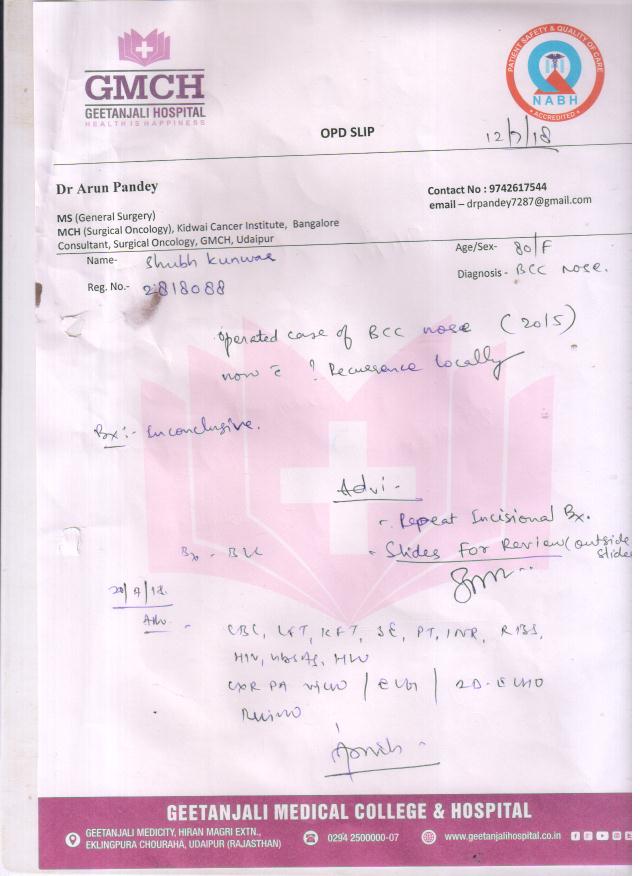 GMCH
GEETANJALI HOSPITAL
HEALTH IS HAPPINESS
PATIENT SAFETY & QUALITY OF CARE
NABH
ACCREDITED
OPD SLIP
12/7/18
Dr Arun Pandey
MS (General Surgery)
MCH (Surgical Oncology), Kidwai Cancer Institute, Bangalore
Consultant, Surgical Oncology, GMCH, Udaipur
Contact No : 9742617544
email – drpandey7287@gmail.com
Name- Shubh Kunwar
Age/Sex- 80/F
Reg. No.- 2818088
Diagnosis - BCC nose.
operated case of BCC nose (2015)
now c̄ ? Recurrance locally
Bx :- Inconclusive.
Advi -
- Repeat Incisional Bx.
- Slides For Review (outside slides
Bx - BCC
20/7/18
Adv. -
CBC, LFT, KFT, SE, PT, INR, RBS,
HIV, HbsAg, HCV
CXR PA view / ECG / 2D-ECHO
Review
GEETANJALI MEDICAL COLLEGE & HOSPITAL
GEETANJALI MEDICITY, HIRAN MAGRI EXTN.,
EKLINGPURA CHOURAHA, UDAIPUR (RAJASTHAN)
0294 2500000-07
www.geetanjalihospital.co.in